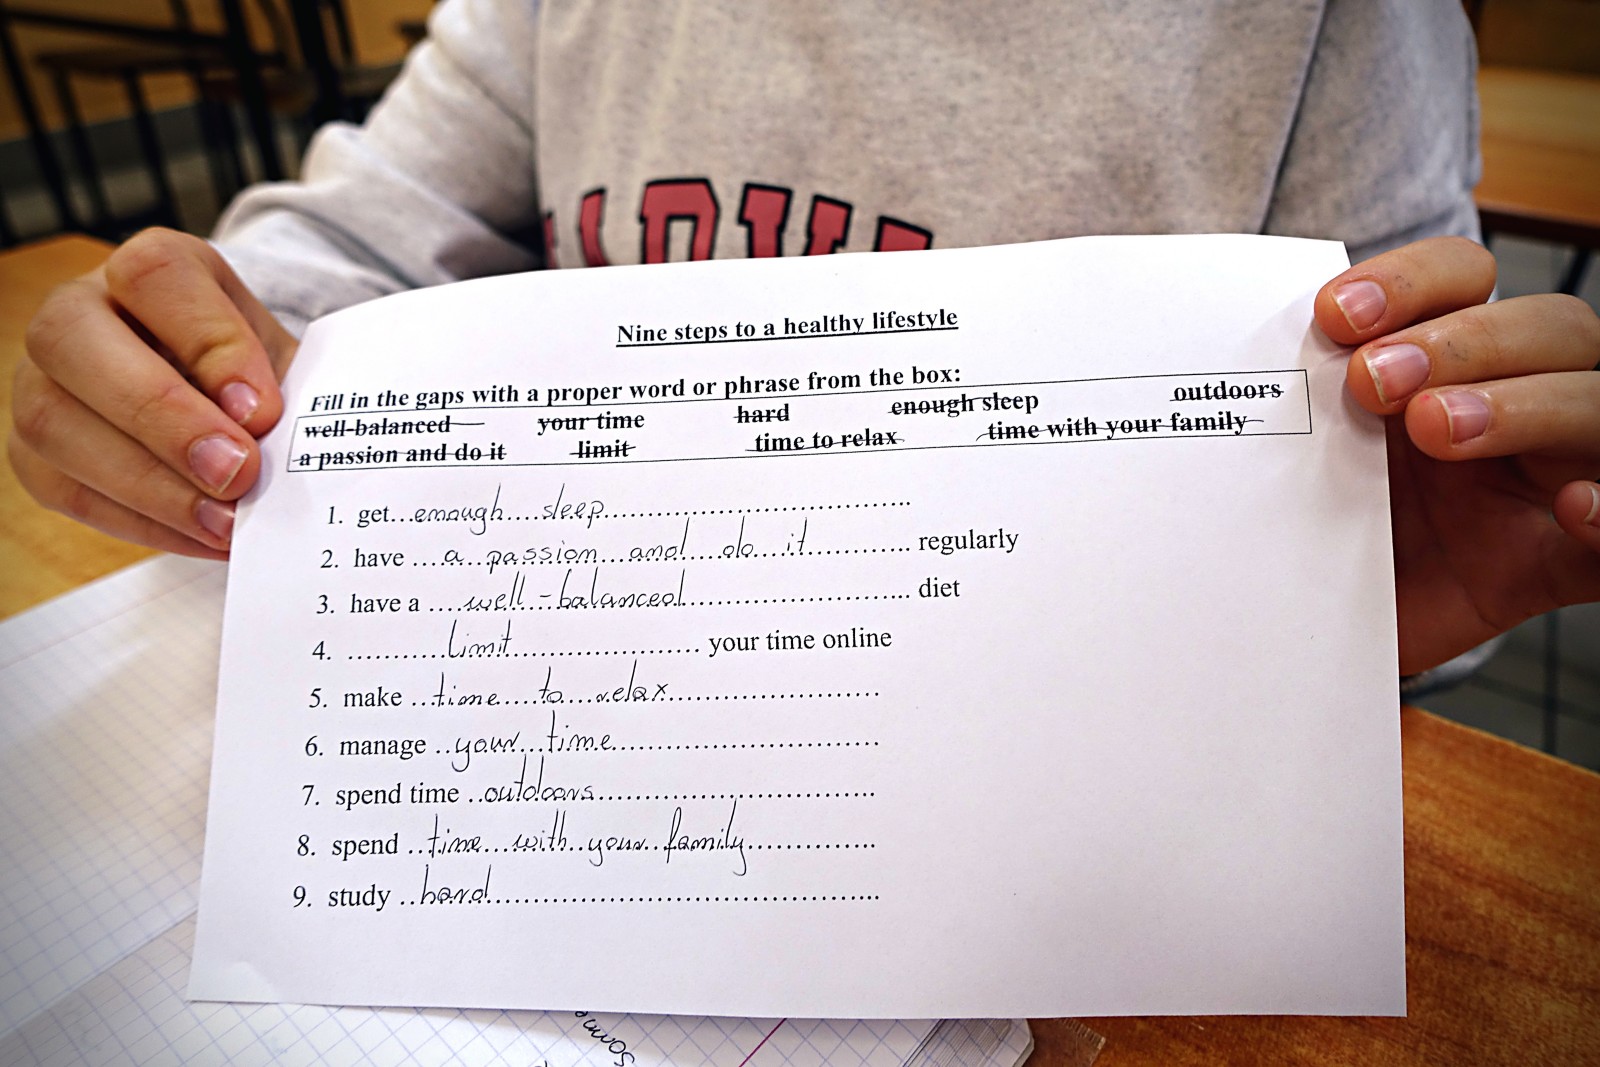 Nine steps to a healthy lifestyle
Fill in the gaps with a proper word or phrase from the box:
well-balanced your time hard enough sleep outdoors
a passion and do it limit time to relax time with your family
1. get...enough....sleep..........................................
2. have ....a...passion...and....do....it.............. regularly
3. have a ....well...-balanced.............................. diet
4. ............limit........................ your time online
5. make ...time.....to....relax............................
6. manage ..your...time...................................
7. spend time ..outdoors.....................................
8. spend ..time...with..your..family.................
9. study ..hard..................................................